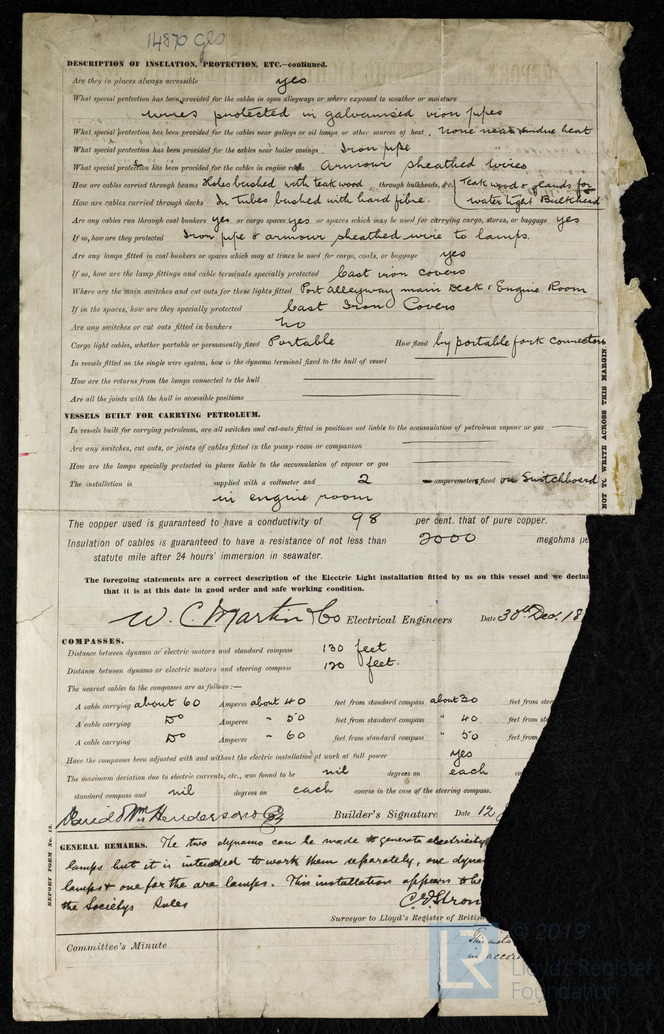 14870 Glo
DESCRIPTION OF INSULATION, PROTECTION, ETC.—continued.
Are they in places always accessible yes
What special protection has been provided for the cables in open alleyways or where exposed to weather or moisture
wires protected in galvanised iron pipes
What special protection has been provided for the cables near galleys or oil lamps or other sources of heat, none near undue heat
What special protection has been provided for the cables near boiler casings Iron pipe
What special protection has been provided for the cables in engine room Armour sheathed wires
How are cables carried through beams Holes bushed with teak wood through bulkheads, &c. Teak wood & glands for
How are cables carried through decks In tubes bushed with hard fibre. water tight Bulkhead
Are any cables run through coal bunkers yes or cargo spaces yes or spaces which may be used for carrying cargo, stores, or baggage yes
If so, how are they protected Iron pipe & armour sheathed wire to lamps.
Are any lamps fitted in coal bunkers or spaces which may at times be used for cargo, coals, or baggage yes
If so, how are the lamp fittings and cable terminals specially protected Cast iron covers
Where are the main switches and cut outs for these lights fitted Port alleyway main Deck & Engine Room
If in the spaces, how are they specially protected Cast Iron Covers
Are any switches or cut outs fitted in bunkers no
Cargo light cables, whether portable or permanently fixed Portable How fixed by portable fork connectors
In vessels fitted on the single wire system, how is the dynamo terminal fixed to the hull of vessel
How are the returns from the lamps connected to the hull
Are all the joints with the hull in accessible positions
NOT TO WRITE ACROSS THIS MARGIN
VESSELS BUILT FOR CARRYING PETROLEUM.
In vessels built for carrying petroleum, are all switches and cut-outs fitted in positions not liable to the accumulation of petroleum vapour or gas
Are any switches, cut outs, or joints of cables fitted in the pump room or companion
How are the lamps specially protected in places liable to the accumulation of vapour or gas
The installation is supplied with a voltmeter and 2 amperemeters, fixed on Switchboard
in engine room
The copper used is guaranteed to have a conductivity of 98 per cent. that of pure copper.
Insulation of cables is guaranteed to have a resistance of not less than 2000 megohms pe
statute mile after 24 hours' immersion in seawater.
The foregoing statements are a correct description of the Electric Light installation fitted by us on this vessel and we declar
that it is at this date in good order and safe working condition.
W. C. Martin & Co Electrical Engineers Date 30th Dec. 18
COMPASSES.
Distance between dynamo or electric motors and standard compass 130 feet
Distance between dynamo or electric motors and steering compass 120 feet.
The nearest cables to the compasses are as follows:—
A cable carrying about 60 Amperes about 40 feet from standard compass about 30 feet from stee
A cable carrying Do Amperes " 50 feet from standard compass " 40 feet from ste
A cable carrying Do Amperes " 60 feet from standard compass " 50 feet from
Have the compasses been adjusted with and without the electric installation at work at full power yes
The maximum deviation due to electric currents, etc., was found to be nil degrees on each co
standard compass and nil degrees on each course in the case of the steering compass.
David & Wm Henderson & Co Builder's Signature Date 12
REPORT FORM No. 13.
GENERAL REMARKS. The two dynamo can be made to generate electricity
lamps but it is intended to work them separately, one dynam
lamps & one for the arc lamps. This installation appears to be
the Societys Rules
C. F. Stron
Surveyor to Lloyd's Register of British
Committee's Minute
in accor
LR
© 2019
Lloyd's Register
Foundation